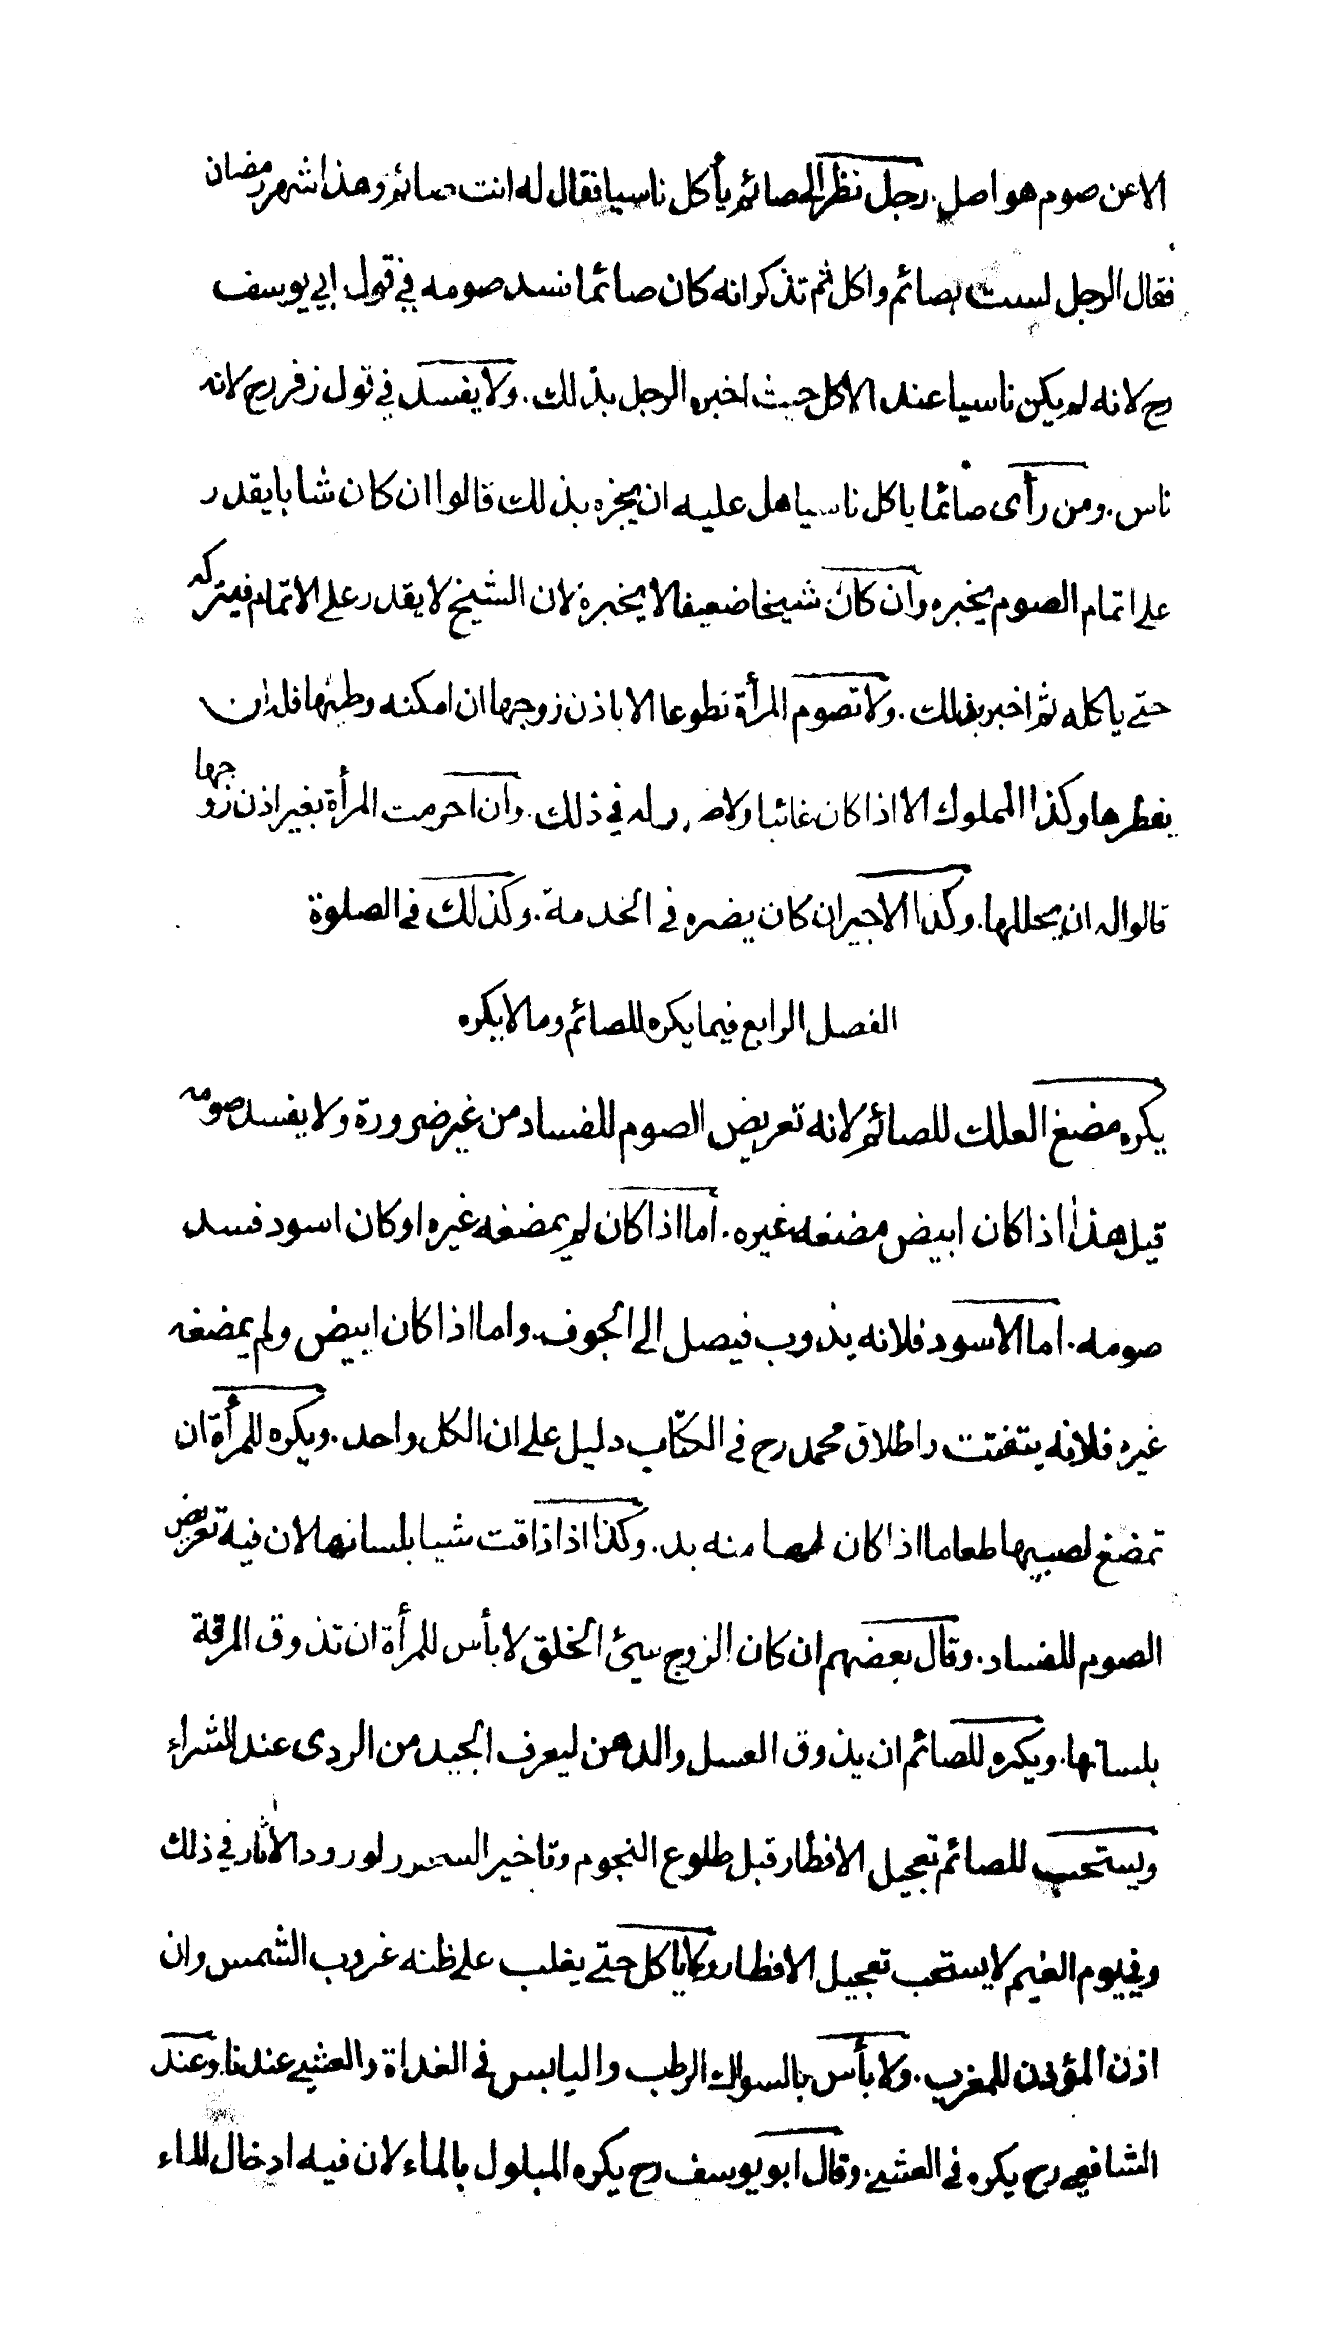 الا عن صوم هو اصل. رجل نظر الى صائم يأكل ناسيا فقال له انت صائم وهذا شهر رمضان
فقال الرجل لست بصائم واكل ثم تذكر انه كان صائما فسد صومه في قول ابي يوسف
رح لانه لم يكن ناسيا عند الاكل حيث اخبره الرجل بذلك. ولا يفسد في قول زفر رح لانه
ناس. ومن رأى صائما ياكل ناسيا هل عليه ان يخبره بذلك قالوا ان كان شابا يقدر
على اتمام الصوم يخبره وان كان شيخا ضعيفا لا يخبره لان الشيخ لا يقدر على الاتمام فيتركه
حتى ياكله ثم اخبر بذلك. ولا تصوم المرأة تطوعا الا باذن زوجها ان امكنه وطئها فله ان
يفطرها وكذا المملوك الا اذا كان غائبا ولا ضرر له في ذلك. وان احرمت المرأة بغير اذن زوجها
قالوا له ان يحللها. وكذا الاجير ان كان يضره في الخدمة. وكذلك في الصلوة
الفصل الرابع فيما يكره للصائم وما لا يكره
يكره مضغ العلك للصائم لانه تعريض الصوم للفساد من غير ضرورة ولا يفسد صومه
قيل هذا اذا كان ابيض مضغه غيره. اما اذا كان لم يمضغه غيره او كان اسود فسد
صومه. اما الاسود فلانه يذوب فيصل الى الجوف. واما اذا كان ابيض ولم يمضغه
غيره فلانه يتفتت واطلاق محمد رح في الكتاب دليل على ان الكل واحد. ويكره للمرأة ان
تمضغ لصبيها طعاما اذا كان لها منه بد. وكذا اذا ذاقت شيا بلسانها لان فيه تعريض
الصوم للفساد. وقال بعضهم ان كان الزوج سيئ الخلق لا بأس للمرأة ان تذوق المرقة
بلسانها. ويكره للصائم ان يذوق العسل والدهن ليعرف الجيد من الردى عند الشراء
ويستحب للصائم تعجيل الافطار قبل طلوع النجوم وتاخير السحور لورود الاثار في ذلك
وفي يوم الغيم لا يستحب تعجيل الافطار ولا ياكل حتى يغلب على ظنه غروب الشمس وان
اذن المؤذن للمغرب. ولا بأس بالسواك الرطب واليابس في الغداة والعشي عندنا وعند
الشافعي رح يكره في العشي. وقال ابو يوسف رح يكره المبلول بالماء لان فيه ادخال الماء